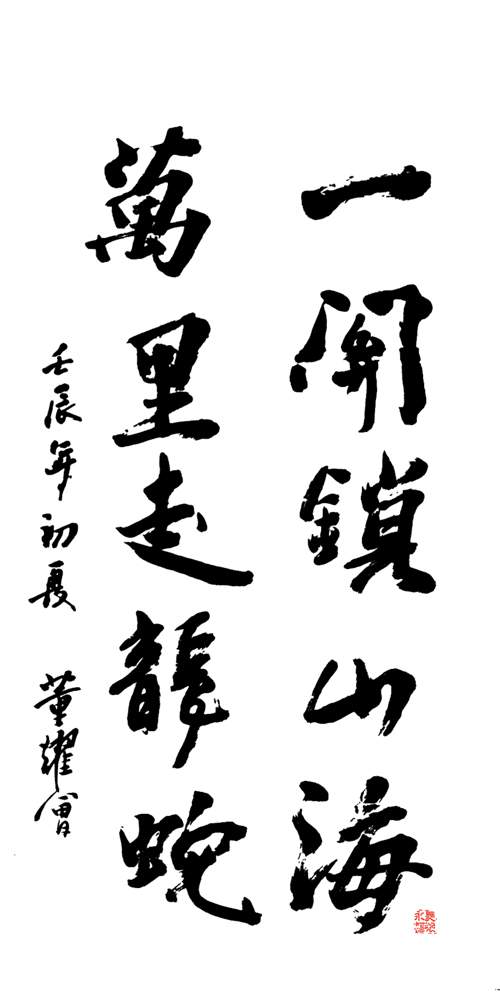 一關鎖山海
萬里走龍蛇
壬辰年初夏 董耀會